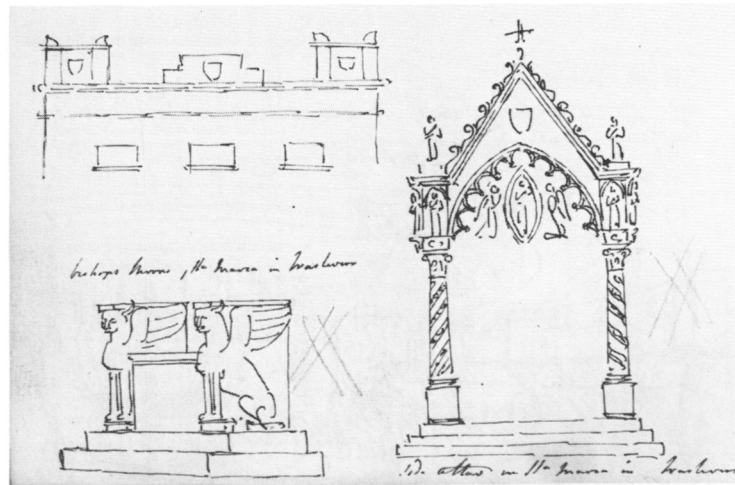 bishops throne, Sta Maria in Trastevere
side altar in Sta Maria in Trastevere